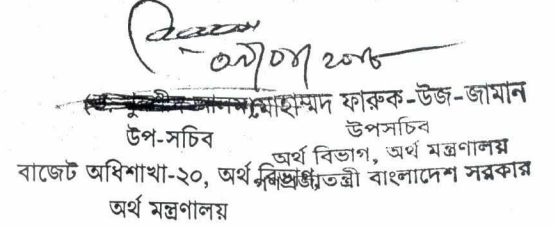 মোহাম্মদ ফারুক-উজ-জামান
উপ-সচিব উপসচিব
অর্থ বিভাগ, অর্থ মন্ত্রণালয়
বাজেট অধিশাখা-২০, অর্থ বিভাগ, গণপ্রজাতন্ত্রী বাংলাদেশ সরকার
অর্থ মন্ত্রণালয়